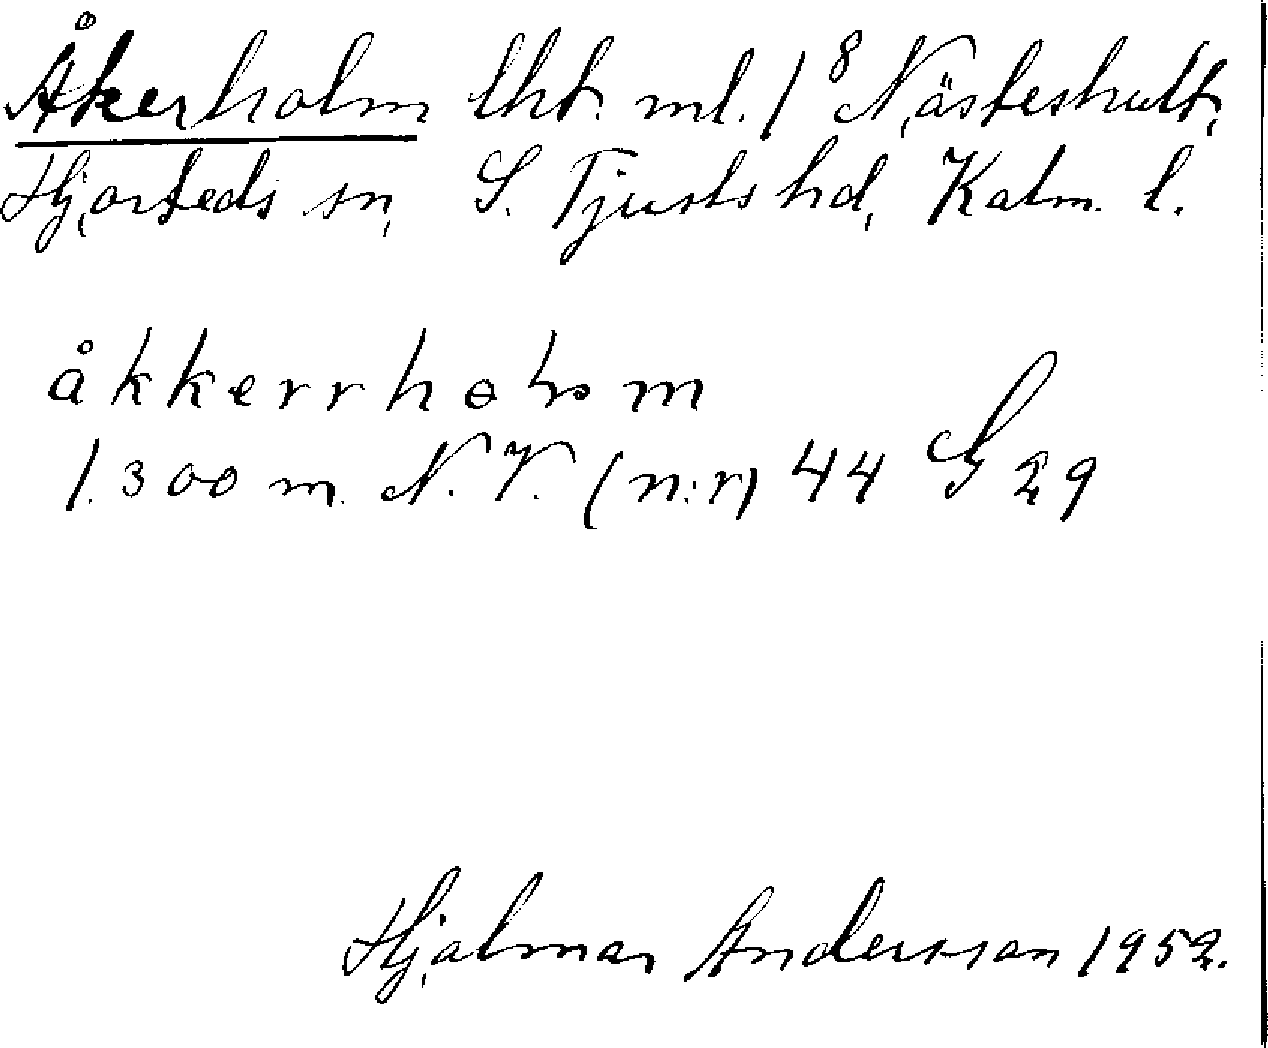 Åkerholm lht. ml. 1⁸ Nästeshult,
Hjorteds sn, S. Tjusts hd, Kalm. l.
åkkerrholm
1.300 m. N. V. (n:r) 44 G 29
Hjalmar Andersson 1952.